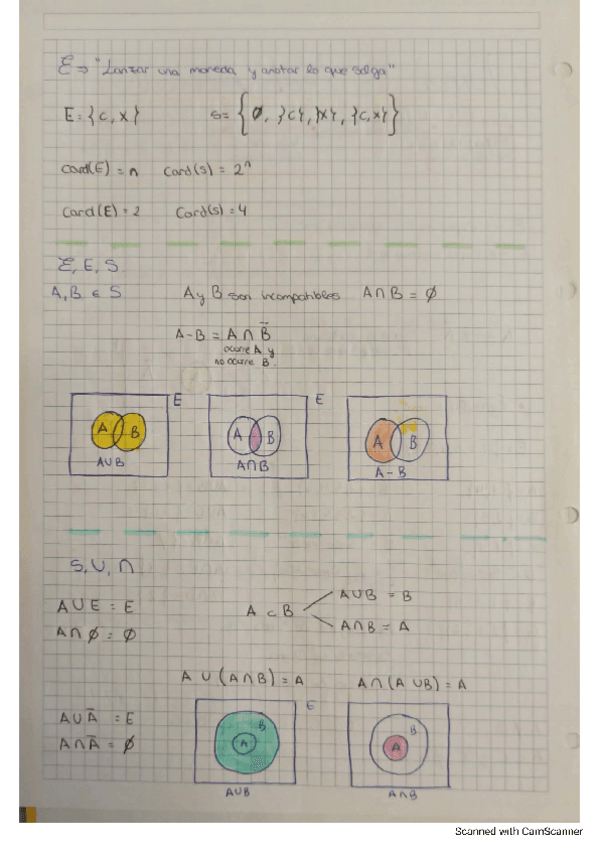 ℰ → "Lanzar una moneda y anotar lo que salga"
E = {C, X} S = {∅, {C}, {X}, {C, X}}
card(E) = n Card(S) = 2ⁿ
Card(E) = 2 Card(S) = 4
ℰ, E, S
A, B ∈ S A y B son incompatibles A∩B = ∅
A-B = A∩B̄
ocurre A y
no ocurre B.
E E
A B A B A B
A∪B A∩B A-B
S, ∪, ∩
A∪E = E
A∩∅ = ∅
A ⊂ B
A∪B = B
A∩B = A
A∪(A∩B) = A A∩(A∪B) = A
A∪Ā = E
A∩Ā = ∅
E
B A B A
A∪B A∩B
Scanned with CamScanner